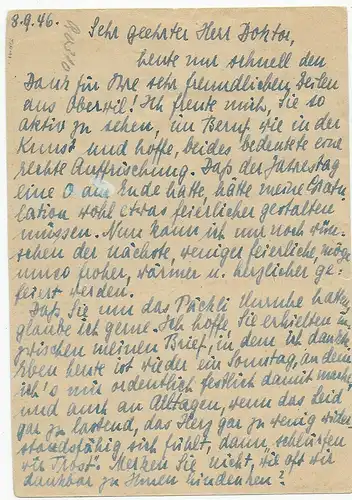 8.9.46.
Sehr geehrter Herr Doktor,
heute nur schnell den
Dank für Ihre sehr freundlichen Zeilen
aus Oberwil! Ich freute mich, Sie so
aktiv zu sehen, im Beruf wie in der
Kunst und hoffe, beides bedeutete eine
rechte Auffrischung. Daß der Jahrestag
eine 0 am Ende hatte, hätte meine Gratu-
lation wohl etwas feierlicher gestalten
müssen. Nun kann ich nur noch wün-
schen der nächste, weniger feierliche, möge
umso froher, wärmer u. herzlicher ge-
feiert werden.
Daß Sie um das Päckli Unruhe hatten,
glaube ich gerne. Ich hoffe, Sie erhielten in-
zwischen meinen Brief, in dem ich dankte.
Eben heute ist wieder ein Sonntag, an dem
ich's mir ordentlich festlich damit mache
und auch an Alltagen, wenn das Leid
gar zu lastend, das Herz gar zu wenig wider-
standsfähig sich fühlt, dann schlürfen
wir Trost. Merken Sie nicht, wie oft wir
dankbar zu Ihnen hindenken?